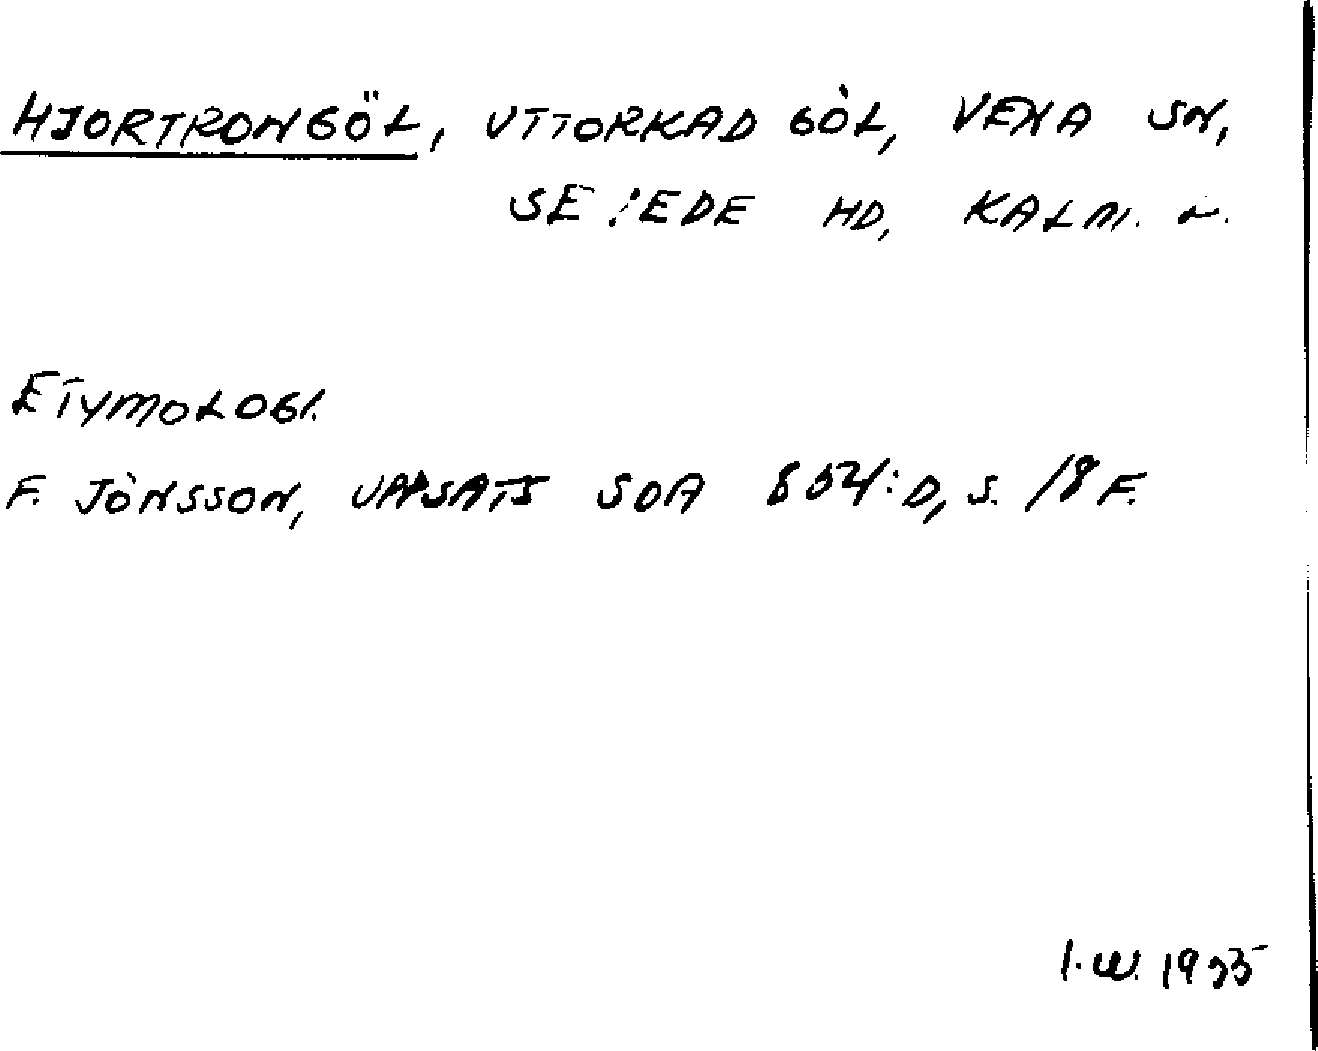 HJORTRONGÖL, UTTORKAD GÖL, VENA SN,
SEVEDE HD, KALM. L.
ETYMOLOGI.
F. JÖNSSON, UPPSATS SOA 854:D, S. 18 F.
I.W. 1935